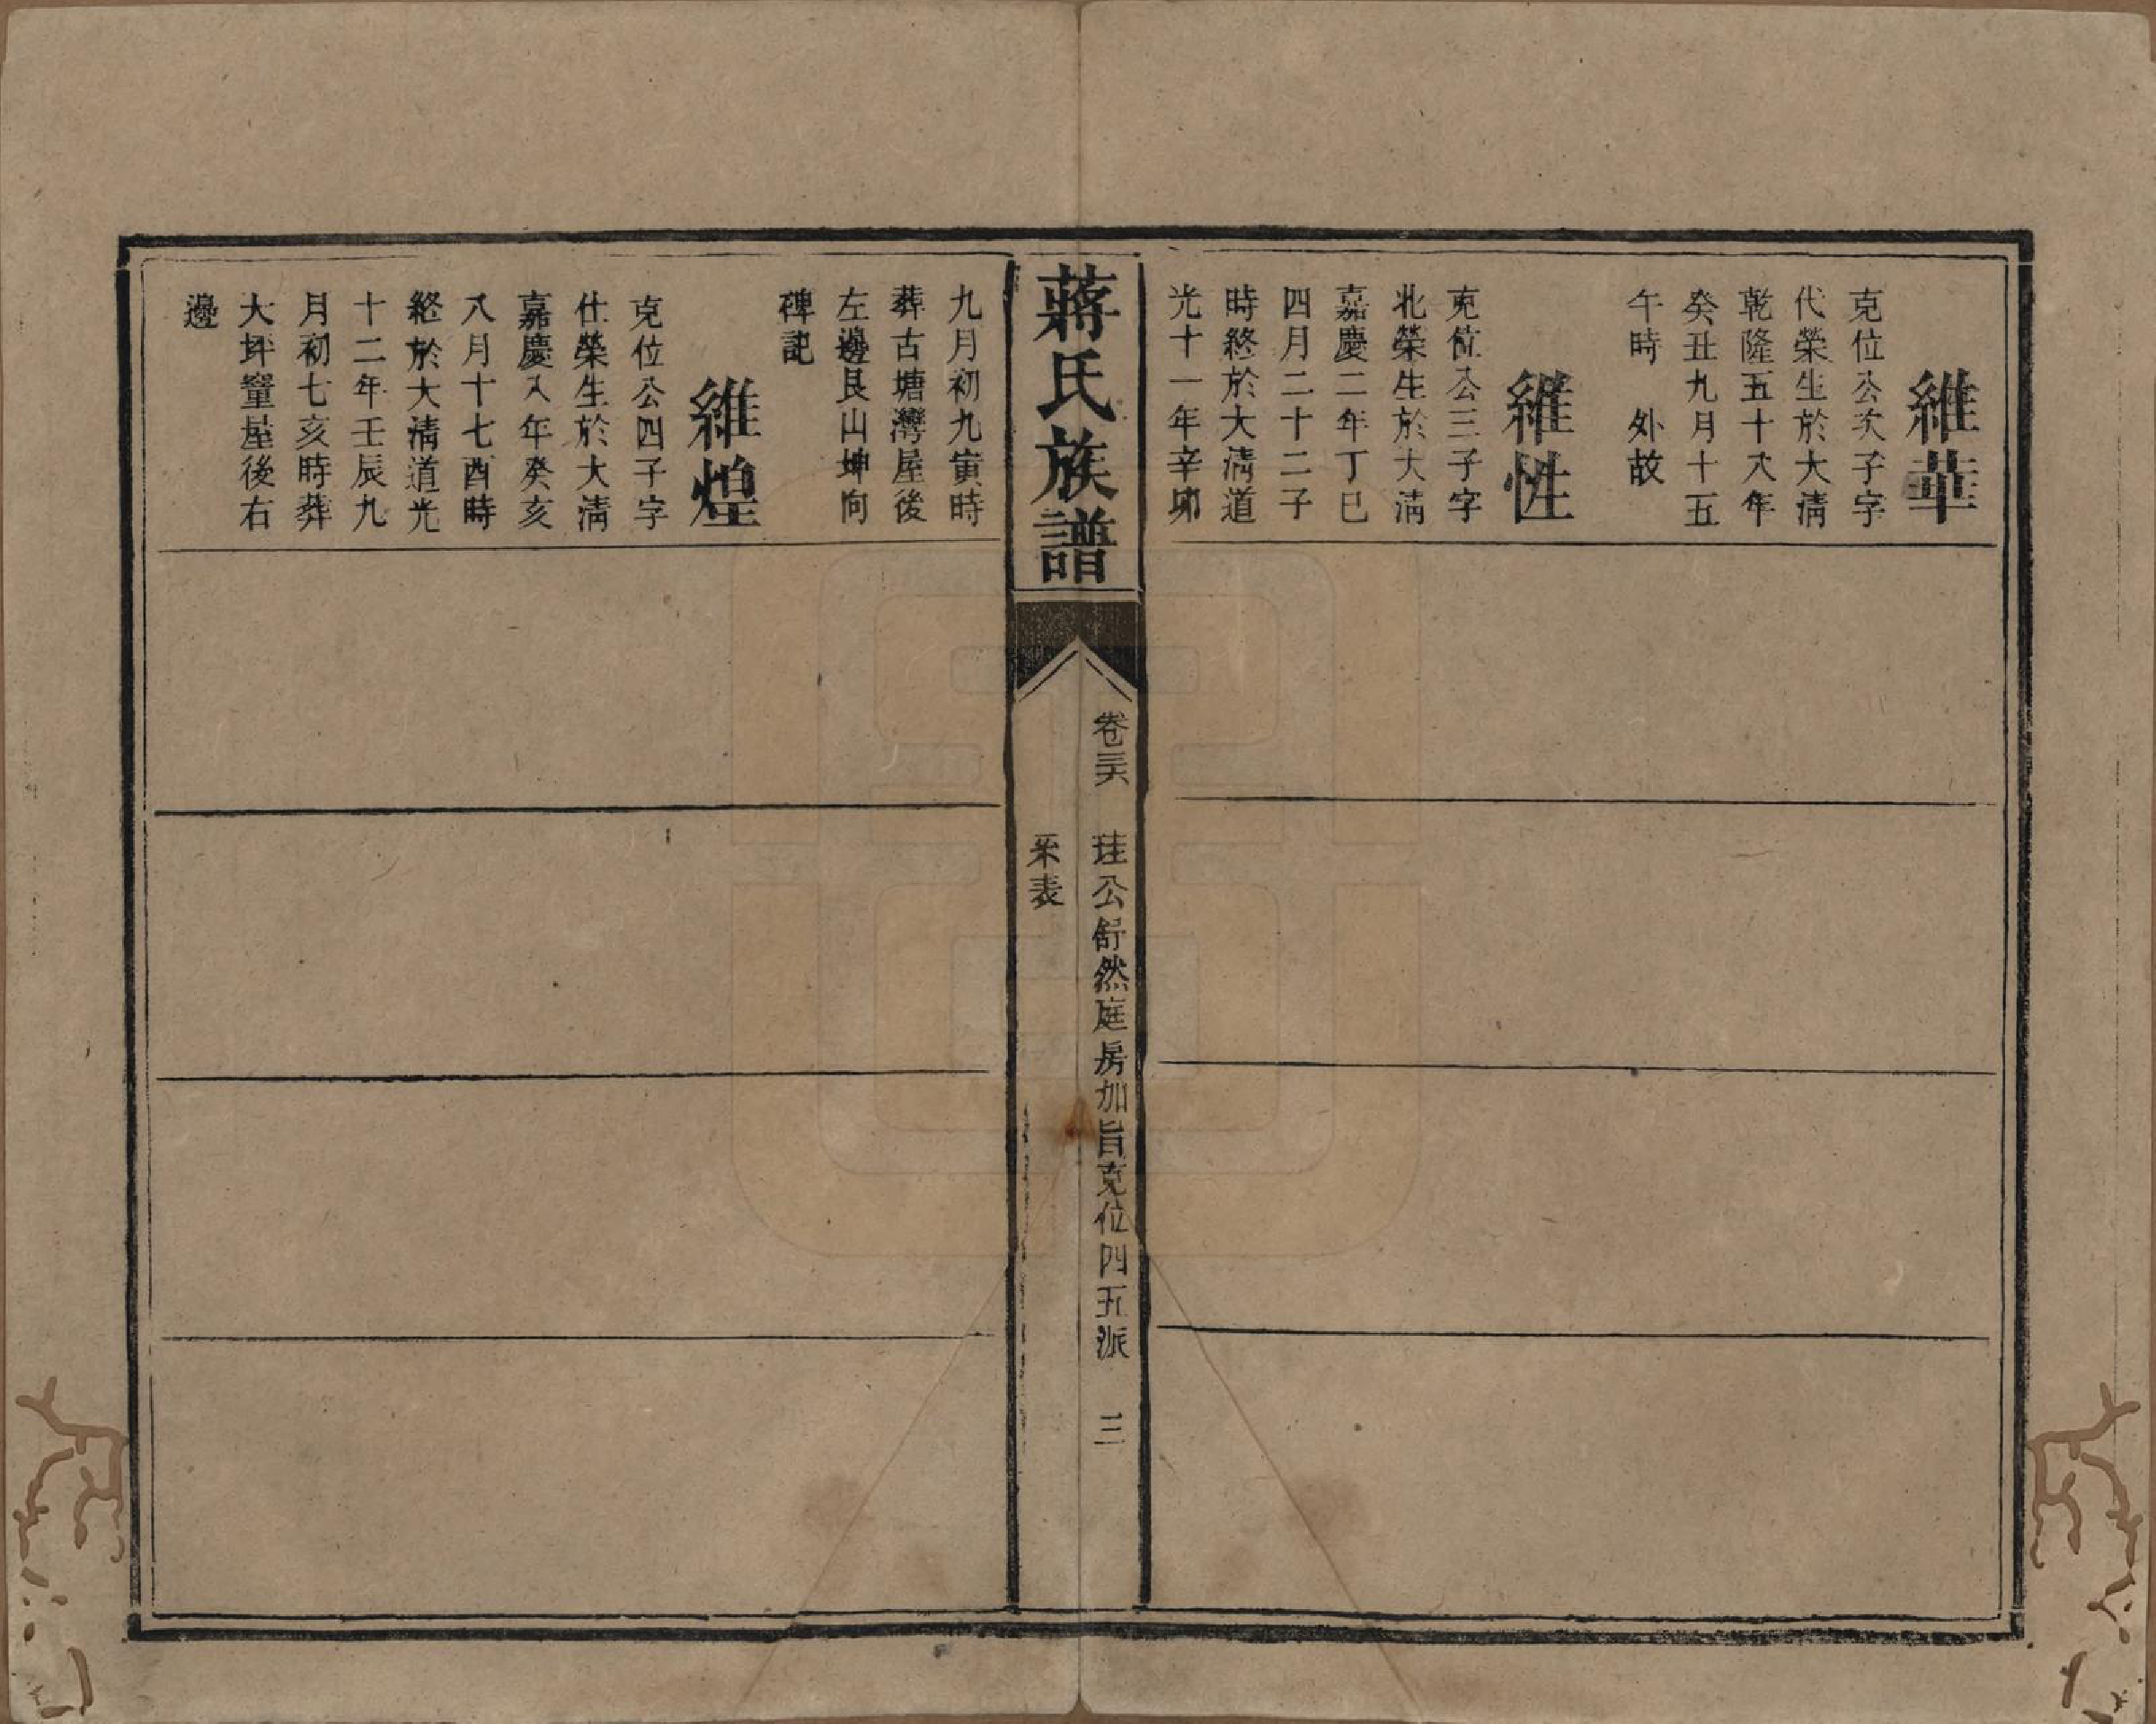 維華
克位公次子字
代榮生於大清
乾隆五十八年
癸丑九月十五
午時　外故
維性
克位公三子字
北榮生於大清
嘉慶二年丁巳
四月二十二子
時終於大清道
光十一年辛卯
蔣氏族譜
卷三六　珪公舒然庭房加旨克位四五派　三
釆表
九月初九寅時
葬古塘灣屋後
左邊艮山坤向
碑記
維煌
克位公四子字
仕榮生於大清
嘉慶八年癸亥
八月十七酉時
終於大清道光
十二年壬辰九
月初七亥時葬
大坪窰屋後右
邊